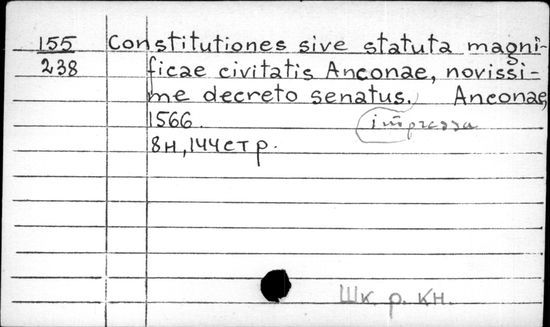 155 Constitutiones sive statuta magni-
238 ficae civitatis Anconae, novissi-
me decreto senatus. Anconae,
1566. impressa
8н, 144 стр.
Шк р. кн.